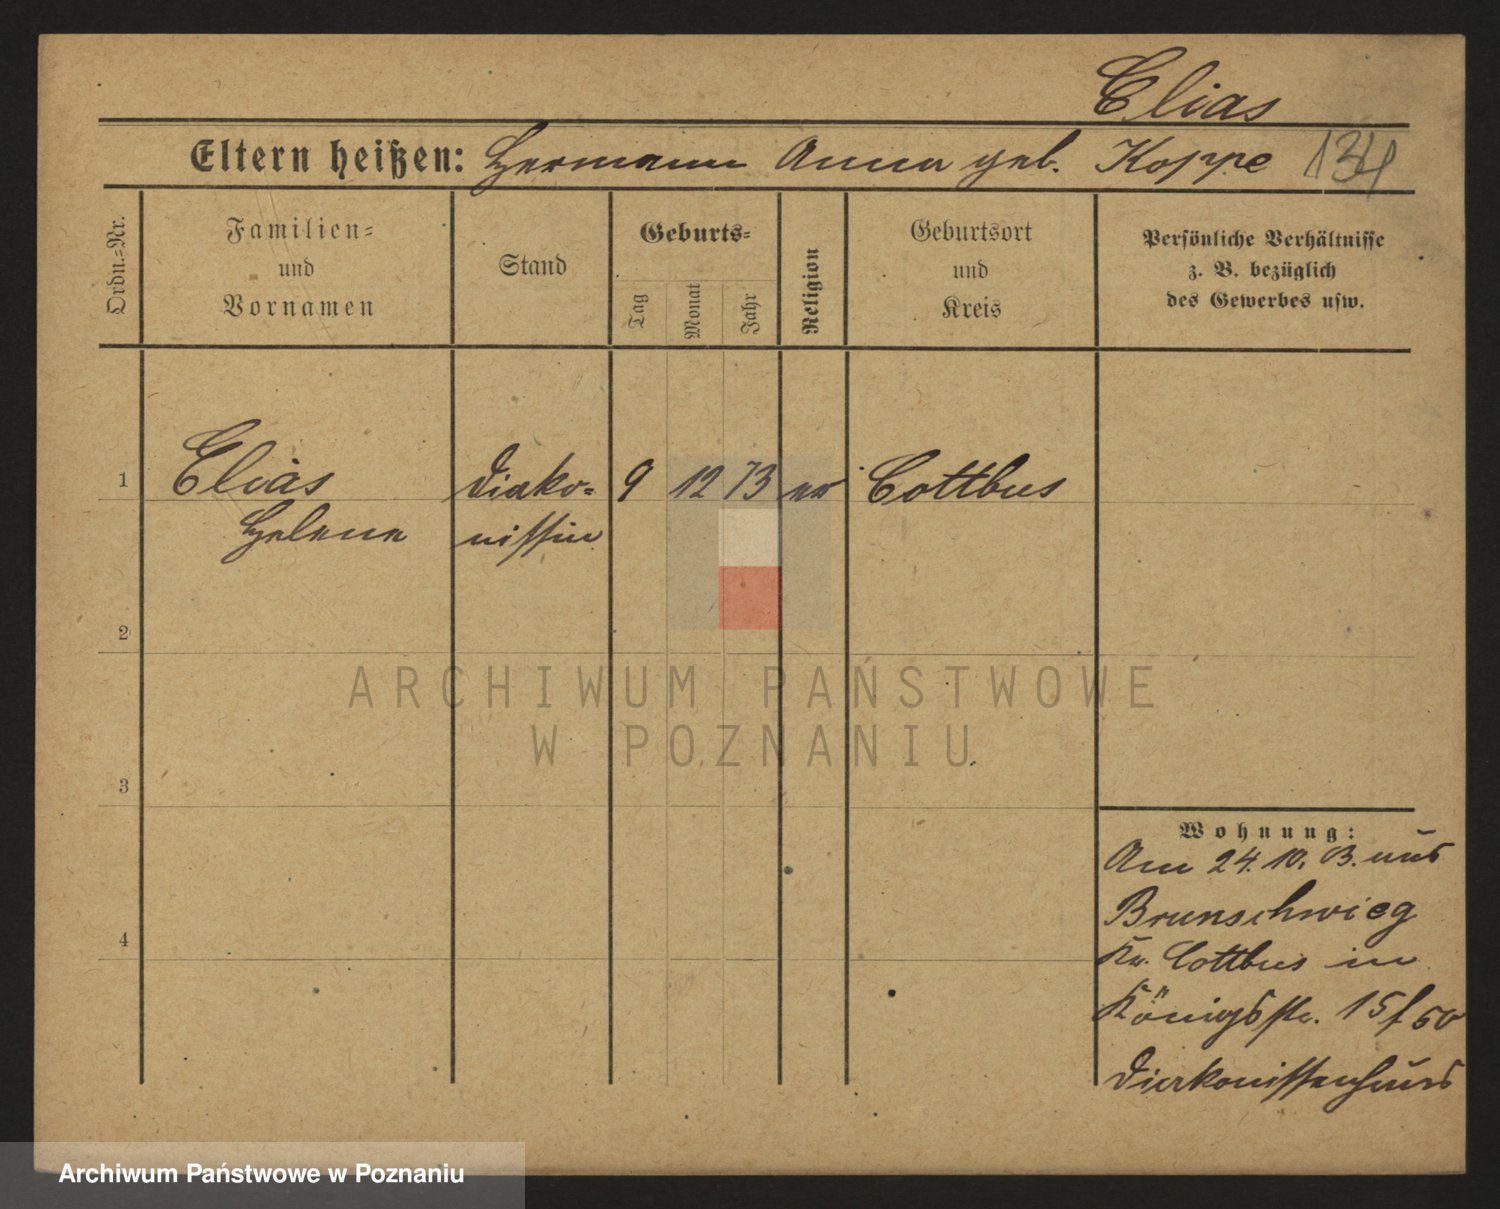 Elias
Eltern heißen: Hermann Anna geb. Koppe 134
Ordn.-Nr.
Familien-
und
Vornamen
Stand
Geburts-
Tag
Monat
Jahr
Religion
Geburtsort
und
Kreis
Persönliche Verhältnisse
z. B. bezüglich
des Gewerbes usw.
1 Elias Diako- 9 12 73 ev Cottbus
Helene nissin
2
3
4
Wohnung:
Am 24. 10. 03. aus
Brunschwieg
Kr. Cottbus in
Königsstr. 15
Diakonissenhaus
ARCHIWUM PAŃSTWOWE
W POZNANIU
Archiwum Państwowe w Poznaniu